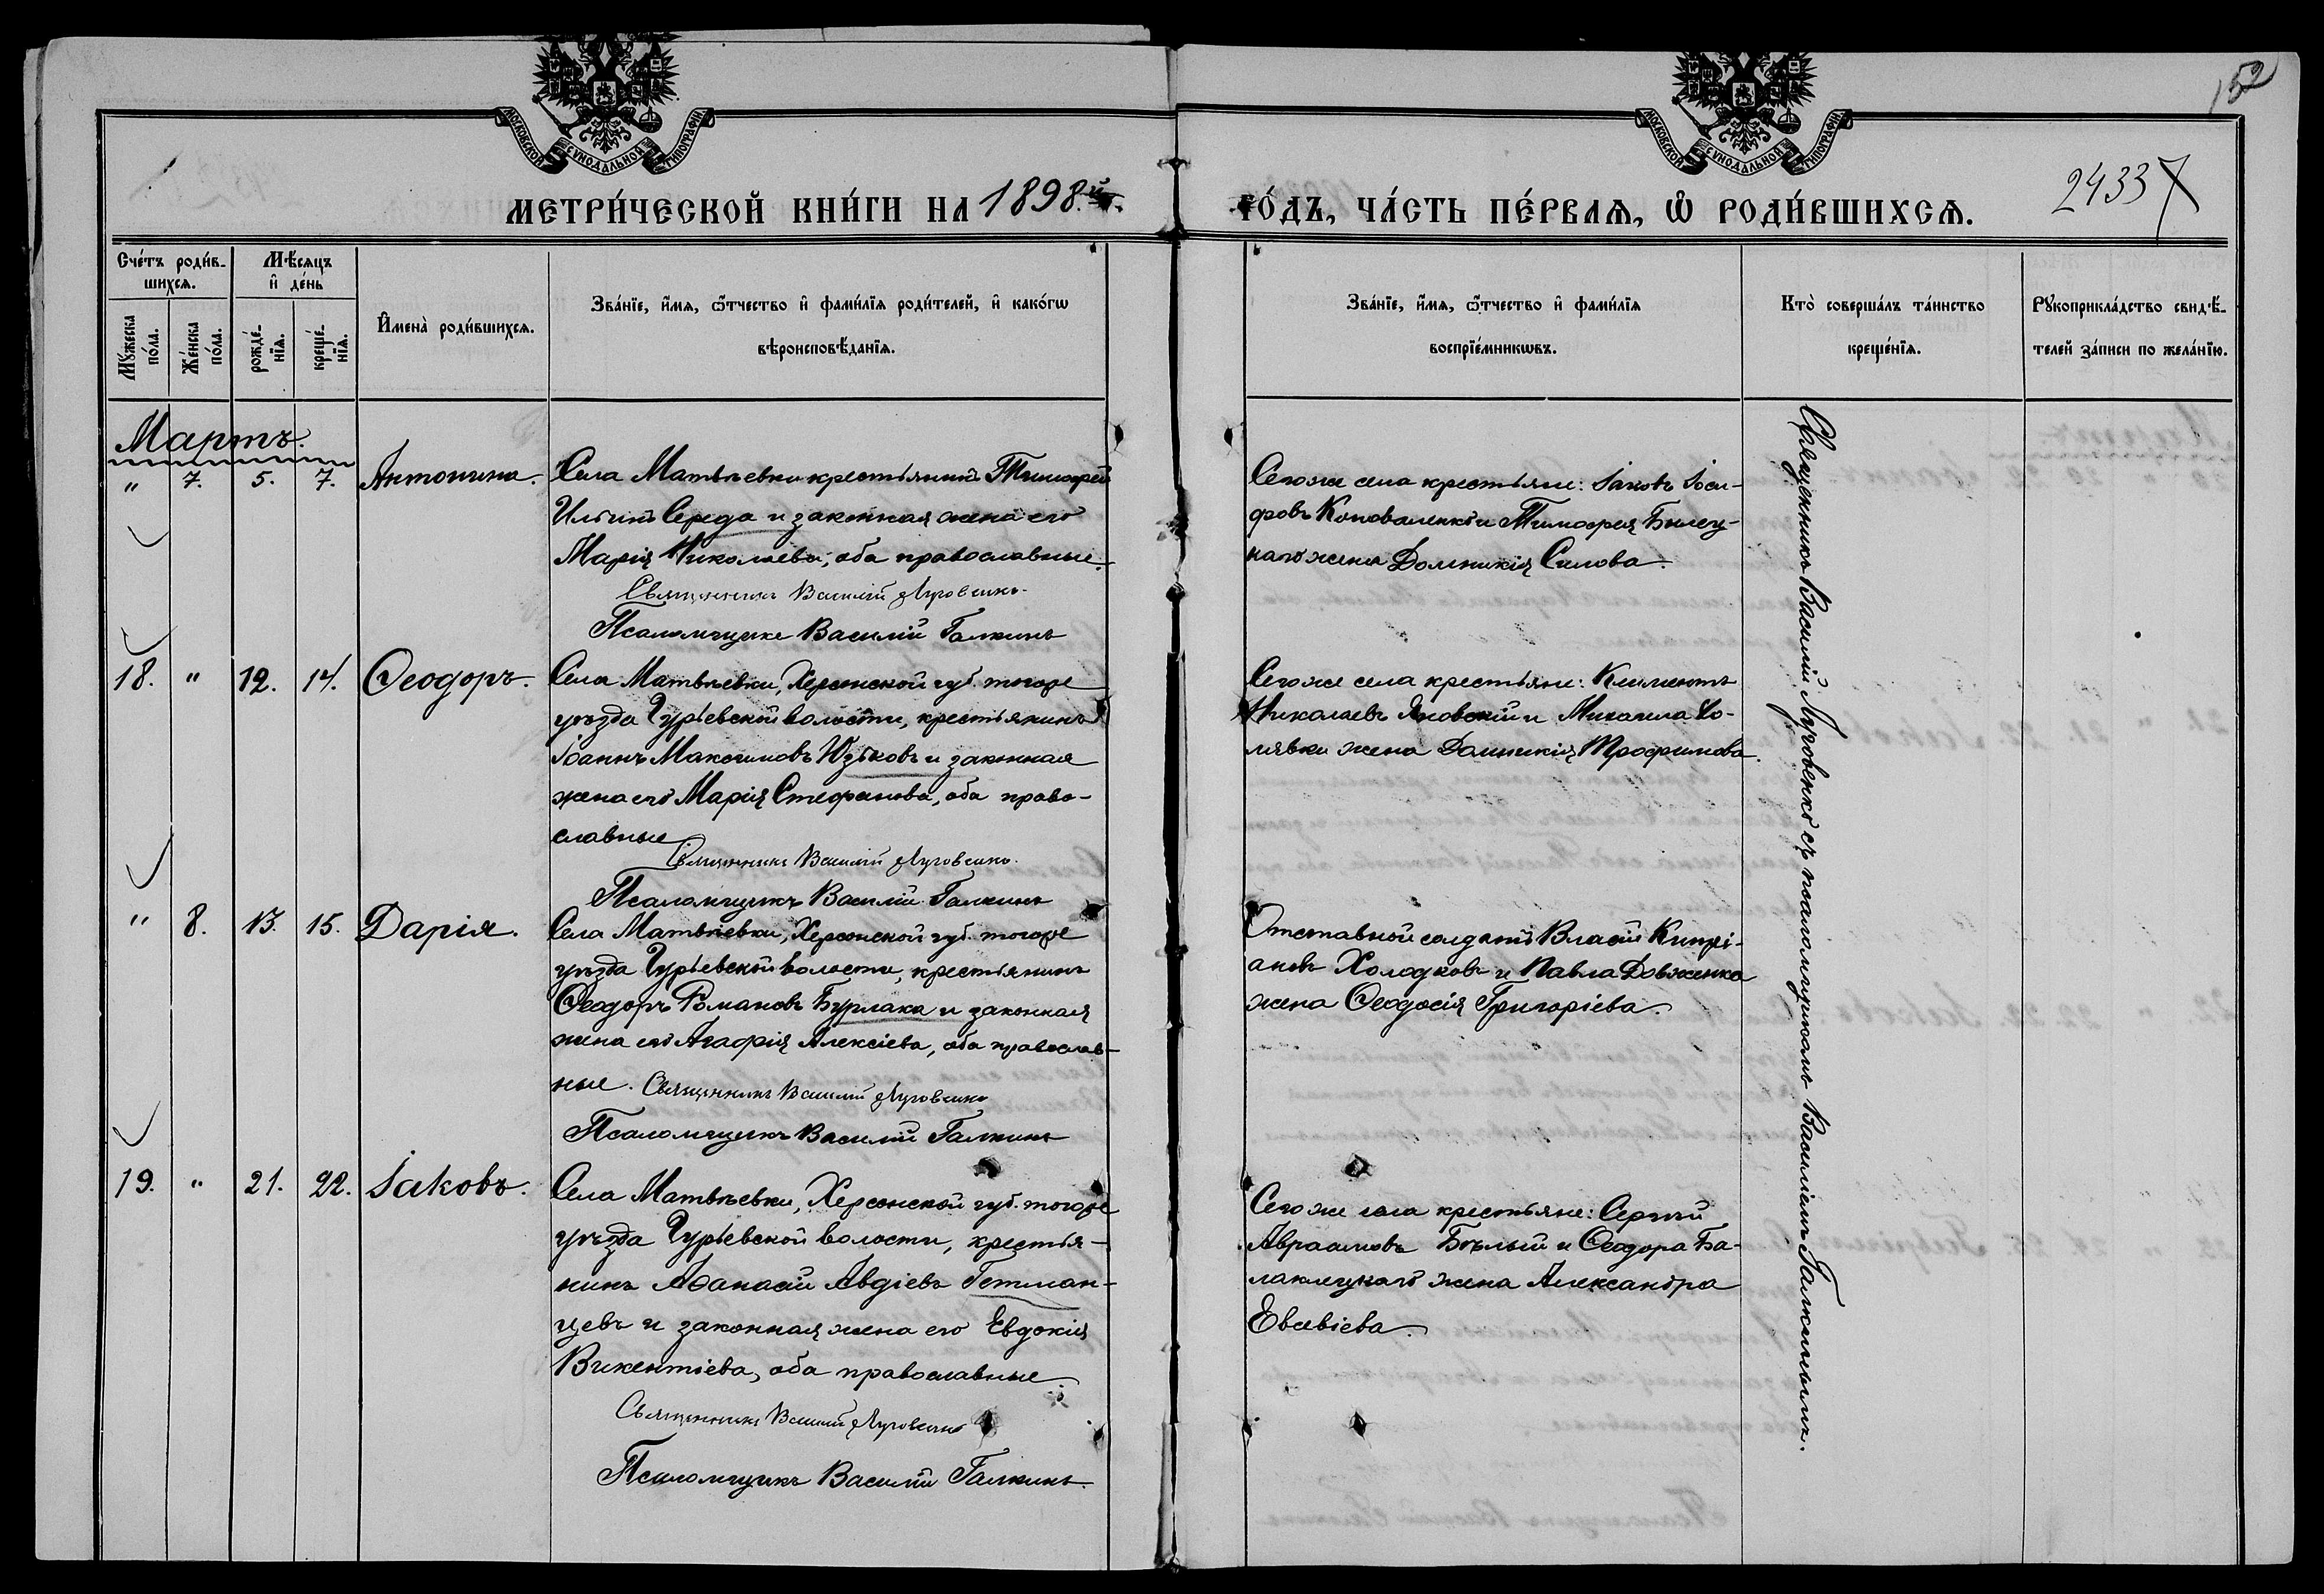 152
МОСКОВСКОЙ СѴНОДАЛЬНОЙ ТИПОГРАФІИ
МОСКОВСКОЙ СѴНОДАЛЬНОЙ ТИПОГРАФІИ
24337
МЕТРИ́ЧЕСКОЙ КНИ́ГИ НА 1898.й
ГО́ДЪ, ЧА́СТЬ ПЕ́РВАѦ, Ѽ РОДИ́ВШИХСѦ.
Сче́тъ роди́в-
шихсѧ.
Мѣ́сѧцъ
и҆ де́нь
Мꙋ́жеска по́ла.
Же́нска по́ла.
рожде́-нїѧ.
креще́-нїѧ.
И҆мена̀ роди́вшихсѧ.
Зва́нїе, и҆́мѧ, ѻ҆́тчество и҆ фами́лїѧ роди́телей, и҆ како́гѡ
вѣроисповѣ́данїѧ.
Зва́нїе, и҆́мѧ, ѻ҆́тчество и҆ фами́лїѧ
воспрїе́мникѡвъ.
Кто̀ соверша́лъ та́инство
креще́нїѧ.
Рꙋкоприкла́дство свидѣ́-
телей за́писи по жела́нїю.
Мартъ.
" 7. 5. 7. Антонина.
Села Матвѣевки крестьянинъ Тимоѳей
Ильинъ Середа и законная жена его
Марія Николаева, оба православные.
Священникъ Василій Луговенко.
Псаломщикъ Василій Галкинъ
Сегоже села крестьяне: Іаковъ Іоси-
фовъ Коноваленко и Тимоѳея Билец-
каго жена Домникія Силова.
18. " 12. 14. Ѳеодоръ.
Села Матвѣевки, Херсонской губ. тогоже
уѣзда Гурьевской волости, крестьянинъ
Іоаннъ Максимовъ Юзьковъ и законная
жена его Марія Стефанова, оба право-
славные
Священникъ Василій Луговенко.
Псаломщикъ Василій Галкинъ
Сегоже села крестьяне: Климентъ
Николаевъ Яновскій и Михаила Хо-
лявки жена Домникія Трофимова.
" 8. 13. 15. Дарія.
Села Матвѣевки, Херсонской губ. тогоже
уѣзда Гурьевской волости, крестьянинъ
Ѳеодоръ Романовъ Бурлака и законная
жена его Агафія Алексіева, оба православ-
ные. Священникъ Василій Луговенко
Псаломщикъ Василій Галкинъ
Отставной солдатъ Власій Кипрі-
ановъ Холодковъ и Павла Довженка
жена Ѳеодосія Григоріева.
19. " 21. 22. Іаковъ.
Села Матвѣевки, Херсонской губ. тогоже
уѣзда Гурьевской волости, крестья-
нинъ Аѳанасій Авдіевъ Гетман-
цевъ и законная жена его Евдокія
Викентіева, оба православные
Священникъ Василій Луговенко
Псаломщикъ Василій Галкинъ.
Сегоже села крестьяне: Сергій
Авраамовъ Бѣлый и Ѳеодора Ба-
лаклецкаго жена Александра
Евсевіева.
Священникъ Василій Луговенко съ псаломщикомъ Василіемъ Галкинымъ.